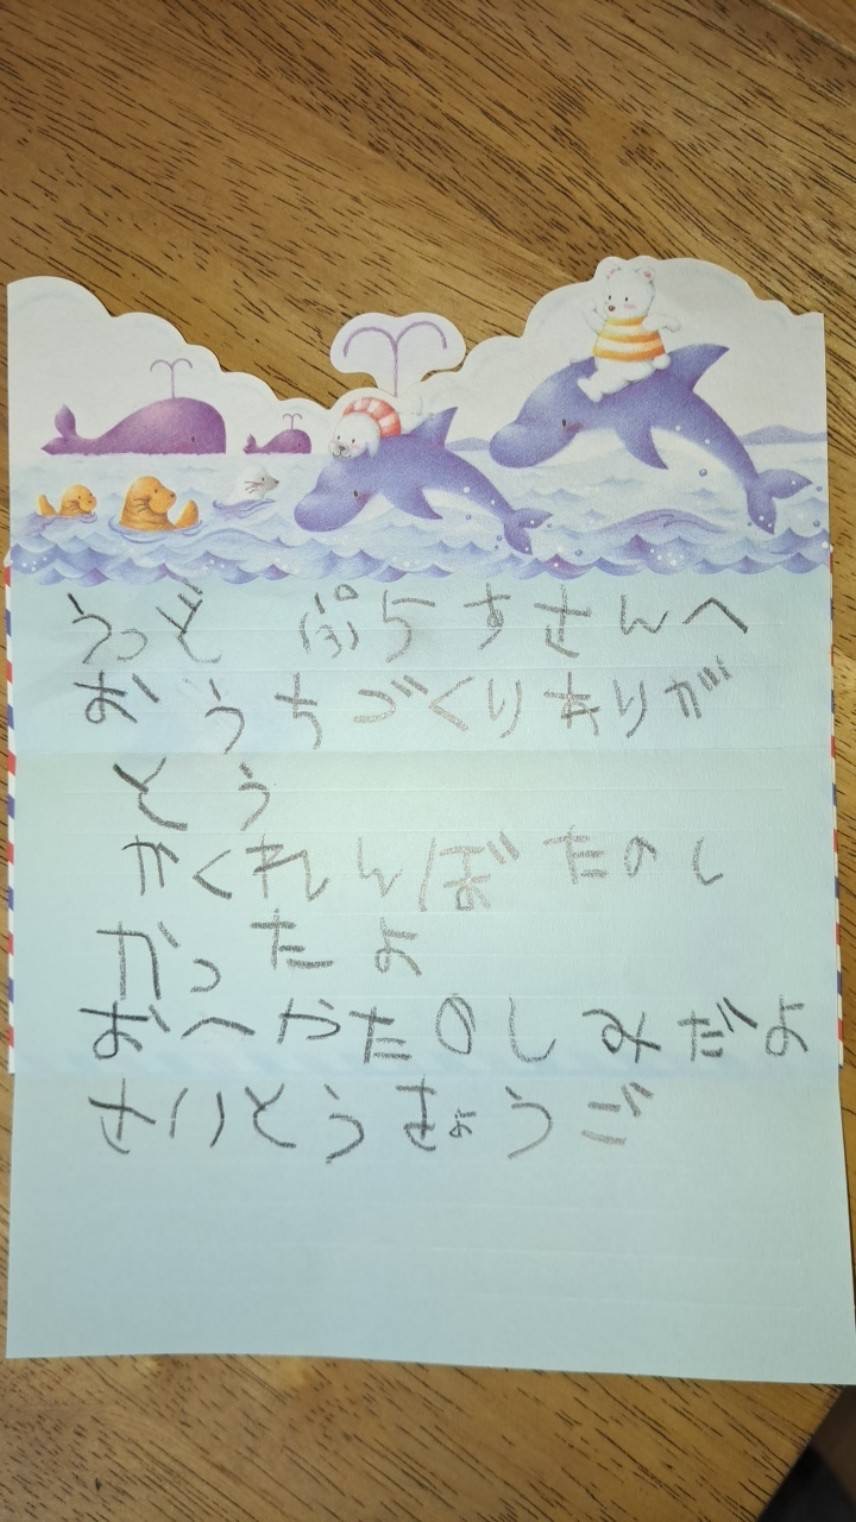 うっど ぷらすさんへ
おうちづくりありが
とう
かくれんぼ たのし
かったよ
おへやたのしみだよ
さいとうきょうご